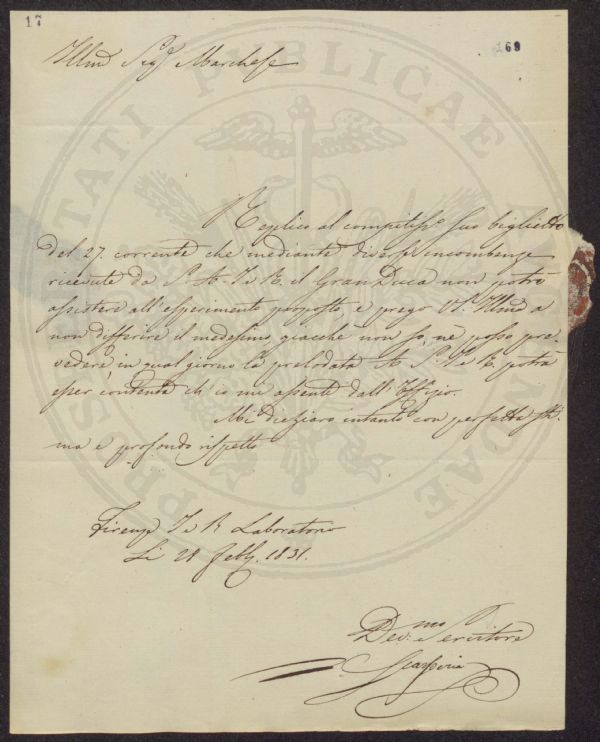 17
169
Illmo Sigr Marchese
Replico al compitissmo suo biglietto
del 27. corrente che mediante diverse incombenze
ricevute da S. A. I. e R. il GranDuca non potrò
assistere all'esperimento proposto, e prego VS. Illma a
non differire il medesimo, giacchè non so, nè posso pre-
vedere, in qual giorno la prelodata A. S. I. e R. potrà
esser contenta ch'io mi assente dall'Uffizio.
Mi dichiaro intanto con perfetta sti-
ma e profondo rispetto
Firenze I. e R. Laboratorio
Li 28 Febb. 1831.
Dev.mo Servitore